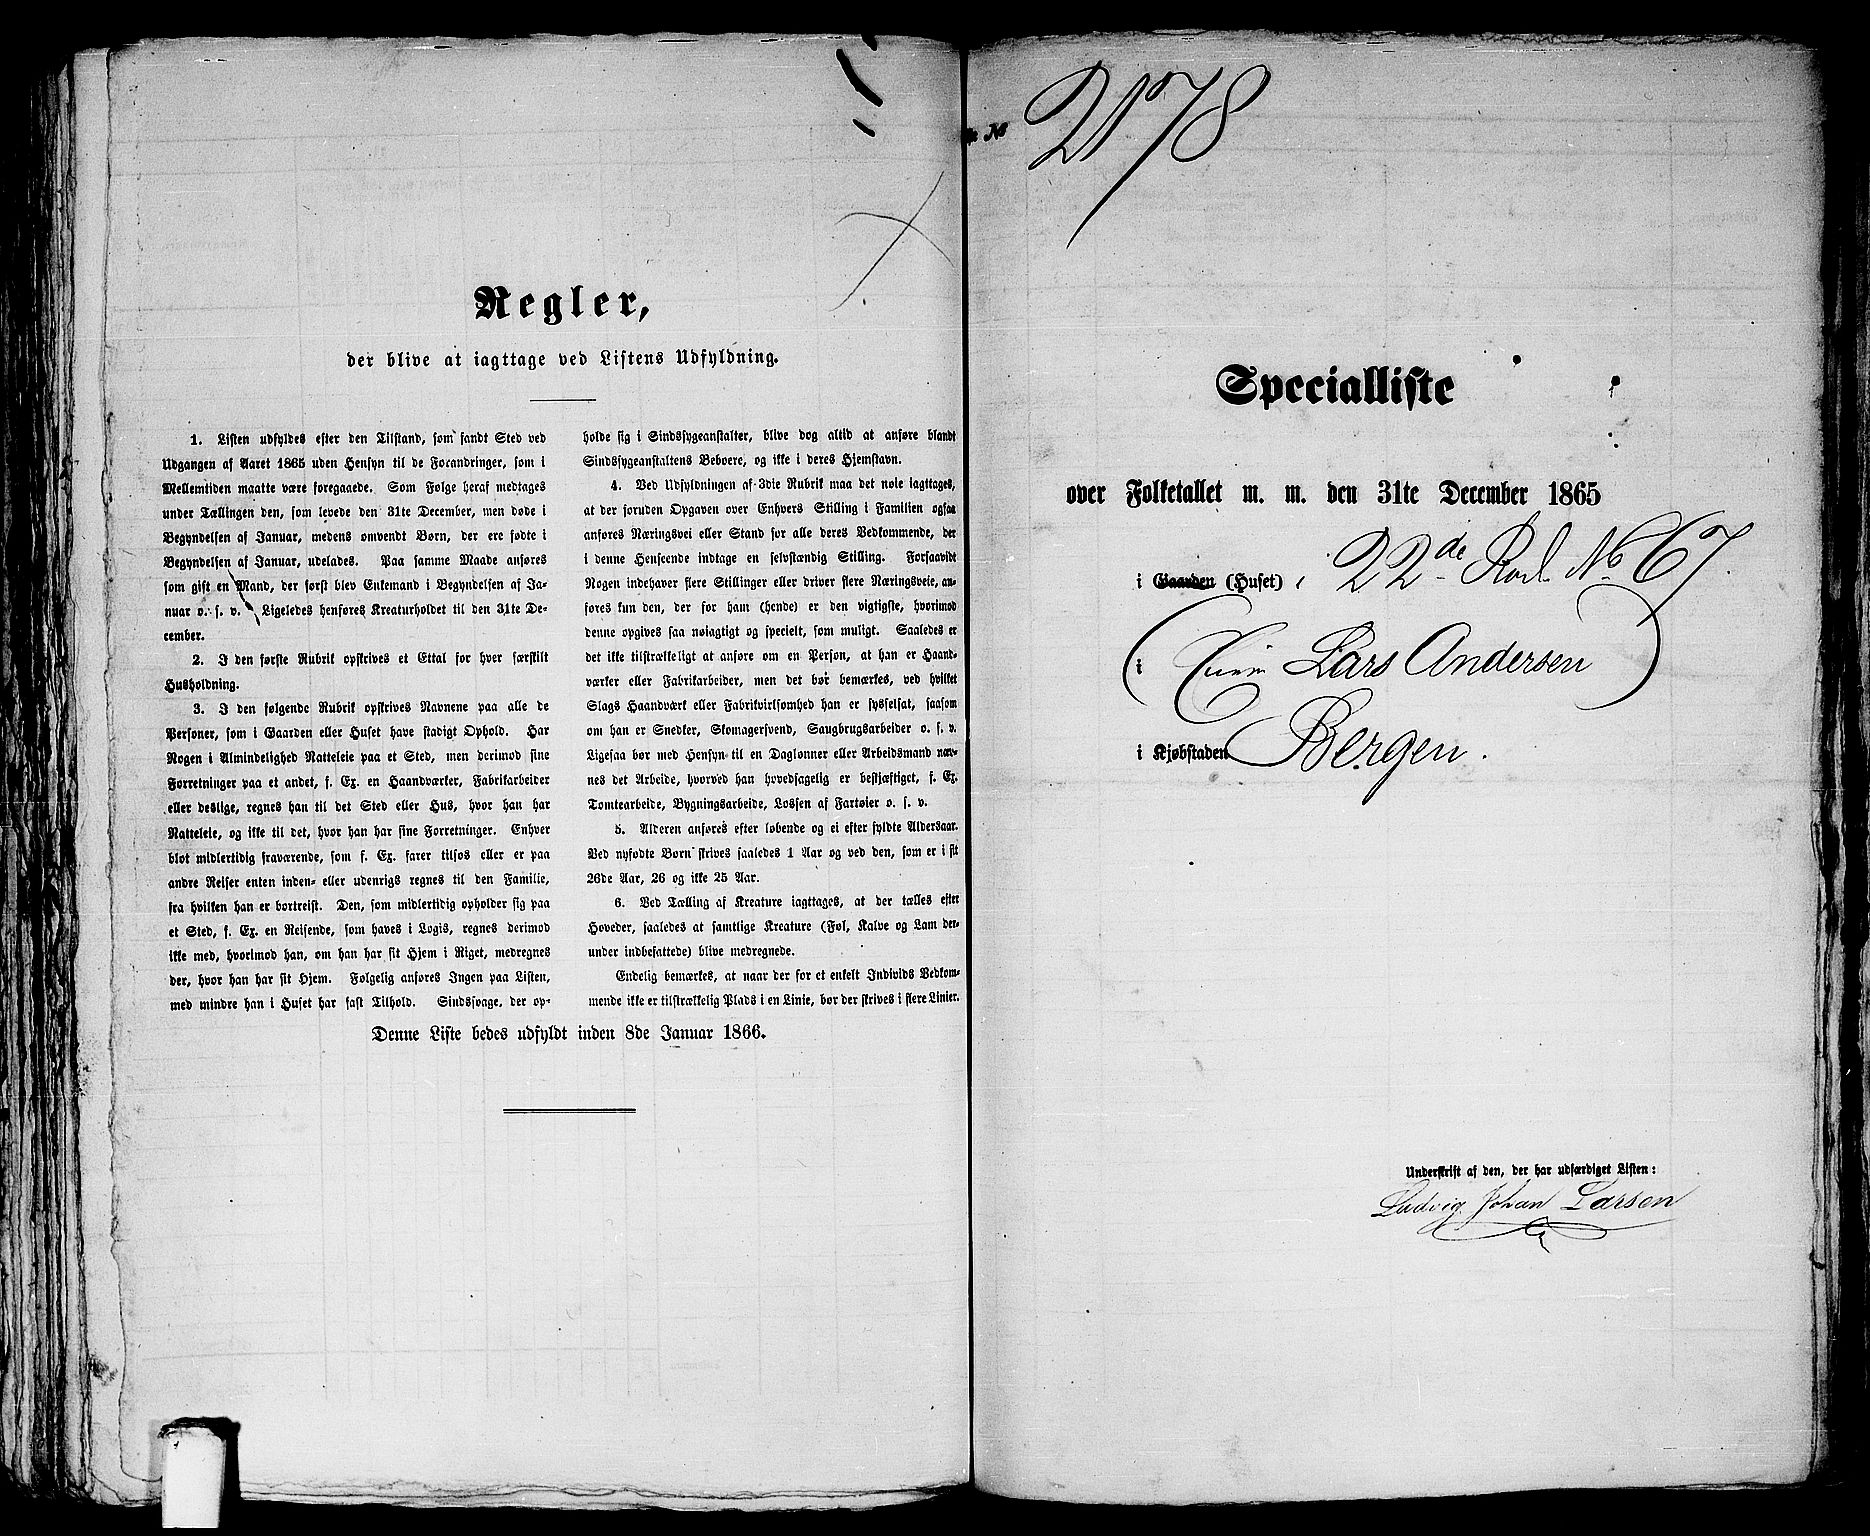 Regler,
der blive at iagttage ved Listens Udfyldning.
1. Listen udfyldes efter den Tilstand, som fandt Sted ved
Udgangen af Aaret 1865 uden Hensyn til de Forandringer, som i
Mellemtiden maatte være foregaaede. Som Følge heraf medtages
under Tællingen den, som levede den 31te December, men døde i
Begyndelsen af Januar, medens omvendt Børn, der ere fødte i
Begyndelsen af Januar, udelades. Paa samme Maade anføres
som gift en Mand, der først blev Enkemand i Begyndelsen af Ja-
nuar o. s. v. Ligeledes henføres Kreaturholdet til den 31te De-
cember.
2. I den første Rubrik opskrives et Ettal for hver særskilt
Husholdning.
3. I den følgende Rubrik opskrives Navnene paa alle de
Personer, som i Gaarden eller Huset have stadigt Ophold. Har
Nogen i Almindelighed Natteleie paa et Sted, men derimod sine
Forretninger paa et andet, f. Ex. en Haandværker, Fabrikarbeider
eller deslige, regnes han til det Sted eller Hus, hvor han har
Natteleie, og ikke til det, hvor han har sine Forretninger. Enhver
blot midlertidig fraværende, som f. Ex. farer tilsøs eller er paa
andre Reiser enten inden- eller udenrigs regnes til den Familie,
fra hvilken han er bortreist. Den, som midlertidig opholder sig paa
et Sted, f. Ex. en Reisende, som haves i Logis, regnes derimod
ikke med, hvorimod han, om han har sit Hjem i Riget, medregnes
der, hvor han har sit Hjem. Følgelig anføres Ingen paa Listen,
med mindre han i Huset har fast Tilhold. Sindssvage, der op-
holde sig i Sindssygeanstalter, blive dog altid at anføre blandt
Sindssygeanstaltens Beboere, og ikke i deres Hjemstavn.
4. Ved Udfyldningen af 3die Rubrik maa det nøie iagttages,
at der foruden Opgaven over Enhvers Stilling i Familien ogsaa
anføres Næringsvei eller Stand for alle deres Vedkommende, der
i denne Henseende indtage en selvstændig Stilling. Forsaavidt
Nogen indehaver flere Stillinger eller driver flere Næringsveie, an-
føres kun den, der for ham (hende) er den vigtigste, hvorimod
denne opgives saa nøiagtigt og specielt, som muligt. Saaledes er
det ikke tilstrækkeligt at anføre om en Person, at han er Haand-
værker eller Fabrikarbeider, men det bør bemærkes, ved hvilket
Slags Haandværk eller Fabrikvirksomhed han er sysselsat, saasom
om han er Snedker, Skomagersvend, Saugbrugsarbeider o. s. v.
Ligesaa bør med Hensyn til en Dagløner eller Arbeidsmand næv-
nes det Arbeide, hvorved han hovedsagelig er bestjæftiget, f. Ex.
Tomtearbeide, Bygningsarbeide, Lossen af Fartøier o. s. v.
5. Alderen anføres efter løbende og ei efter fyldte Aldersaar.
Ved nyfødte Børn skrives saaledes 1 Aar og ved den, som er i sit
26de Aar, 26 og ikke 25 Aar.
6. Ved Tælling af Kreature iagttages, at der tælles efter
Hoveder, saaledes at samtlige Kreature (Føl, Kalve og Lam der-
under indbefattede) blive medregnede.
Endelig bemærkes, at naar der for et enkelt Individs Vedkom-
mende ikke er tilstrækkelig Plads i en Linie, bør der skrives i flere Linier.
Denne Liste bedes udfyldt inden 8de Januar 1866.
№ 2178
Specialliste
over Folketallet m. m. den 31te December 1865
i Gaarden (Huset) i 22de Rod. No 67.
i ( Lars Andersen )
i Kjøbstaden Bergen.
Underskrift af den, der har udfærdiget Listen:
Ludvig Johan Larsen